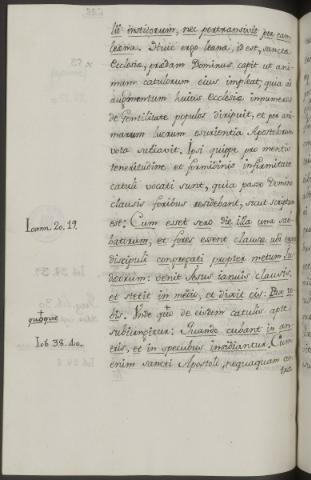 lii institorum, nec pertransivit per eam
leæna. Huic ergo leænæ, id est, sanctæ
Ecclesiæ, prædam Dominus capit ut ani-
mam catulorum ejus impleat, quia ad
augmentum hujus Ecclesiæ innumeros
de Gentilitate populos diripuit, et per ani-
marum lucrum esurientia Apostolorum
vota satiavit. Ipsi quippe pro mentis
teneritudine et formidinis infirmitate
catuli vocati sunt, quia passo Domino
clausis foribus residebant, sicut scriptum
Ioann. 20. 19.
est: Cum esset sero die illa una sab-
batorum, et fores essent clausæ, ubi erant
discipuli congregati propter metum Ju-
dæorum: venit Jesus januis clausis,
et stetit in medio, et dixit eis: Pax vo-
quoque
bis. Unde qto de eisdem catulis apte
subjungitur: Quando cubant in an-
Iob 38. 40.
tris, et in specubus insidiantur. Cum
enim sancti Apostoli, nequaquam con-
tra